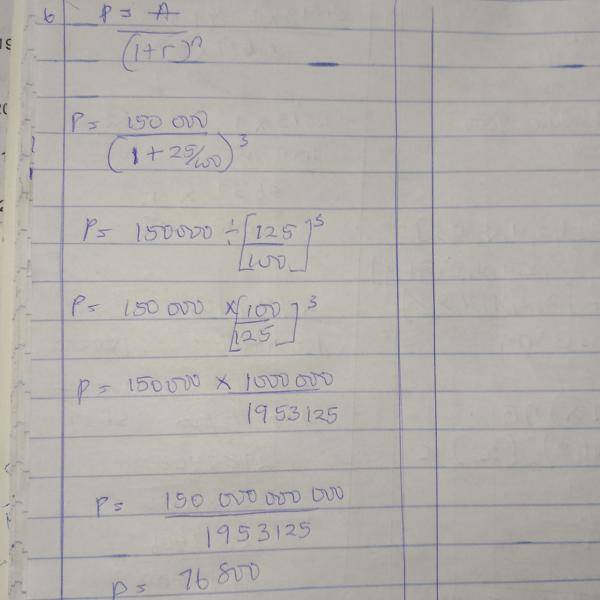 b P = A
(1+r)^n
P = 150 000
(1 + 25/100)^3
P = 150000 ÷ [125
100]^3
P = 150 000 × [100
125]^3
P = 150000 × 1000 000
1953125
P = 150 000 000 000
1953125
P = 76 800